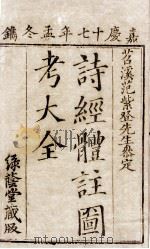 嘉慶十七年孟冬鐫
苕溪范紫登先生叅定
詩經體註圖
考大全
綠蔭堂藏版